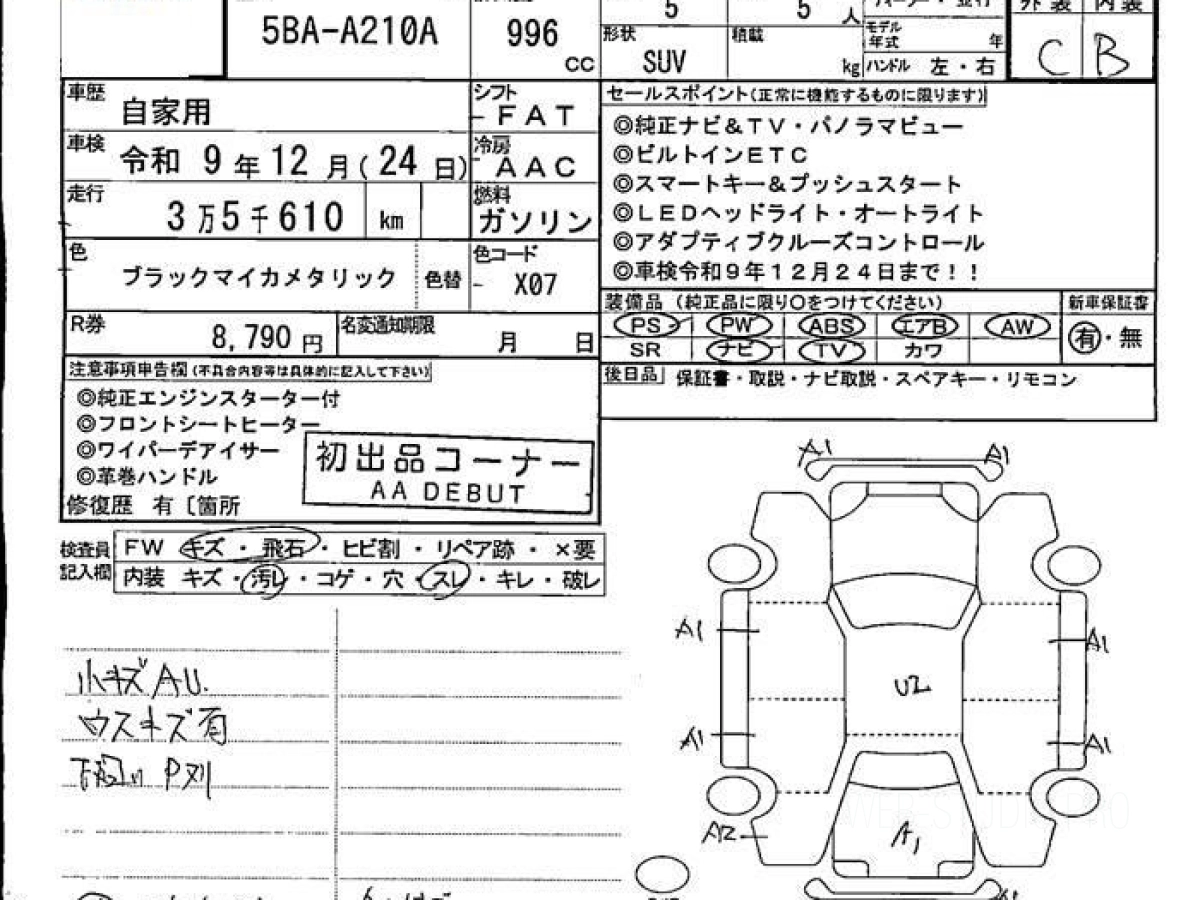 5BA-A210A
996
cc
5
5
人
形状
SUV
積載
kg
モデル
年式
年
ハンドル 左・右
外装 内装
C B
車歴
自家用
シフト
FAT
車検
令和 9年 12月(24日)
冷房
AAC
走行
3万5千610 km
燃料
ガソリン
色
ブラックマイカメタリック
色替
色コード
X07
R券
8,790円
名変通知期限
月 日
セールスポイント(正常に機能するものに限ります)
◎純正ナビ&TV・パノラマビュー
◎ビルトインETC
◎スマートキー&プッシュスタート
◎LEDヘッドライト・オートライト
◎アダプティブクルーズコントロール
◎車検令和9年12月24日まで!!
装備品(純正品に限り○をつけてください)
新車保証書
PS PW ABS エアB AW
有・無
SR ナビ TV カワ
後日品
保証書・取説・ナビ取説・スペアキー・リモコン
注意事項申告欄(不具合内容等は具体的に記入して下さい)
◎純正エンジンスターター付
◎フロントシートヒーター
◎ワイパーデアイサー
◎革巻ハンドル
修復歴 有〔箇所
初出品コーナー
AA DEBUT
検査員
記入欄
FW キズ・飛石・ヒビ割・リペア跡・×要
内装 キズ・汚レ・コゲ・穴・スレ・キレ・破レ
小キズ AU.
ウスキズ有
A1
A1
A1
A1
U2
A1
A1
A2
A1